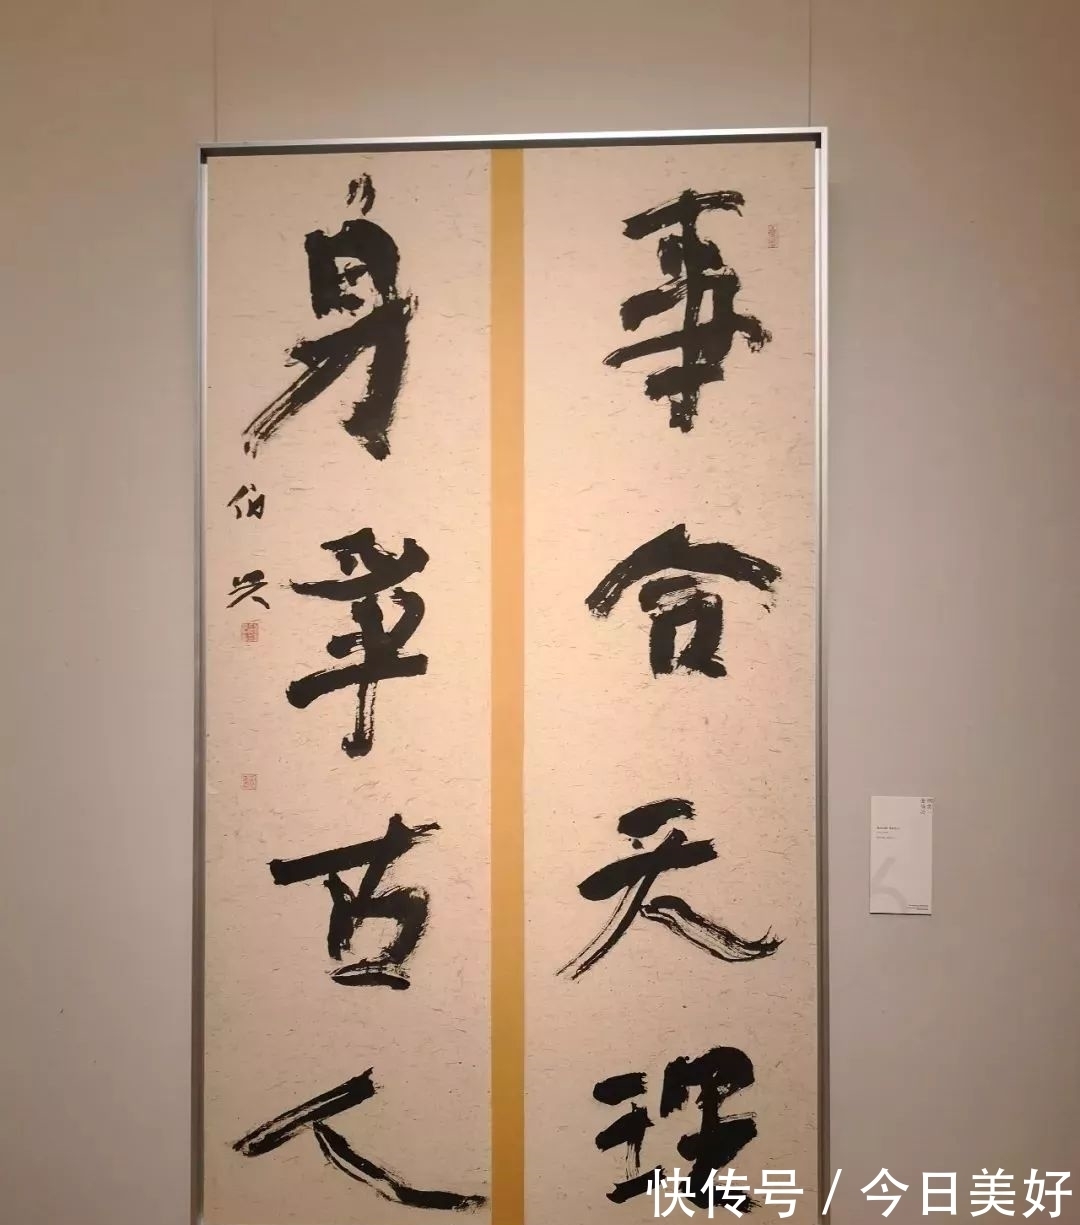 事合天理
身古人
伯兴
快传号 / 今日美好